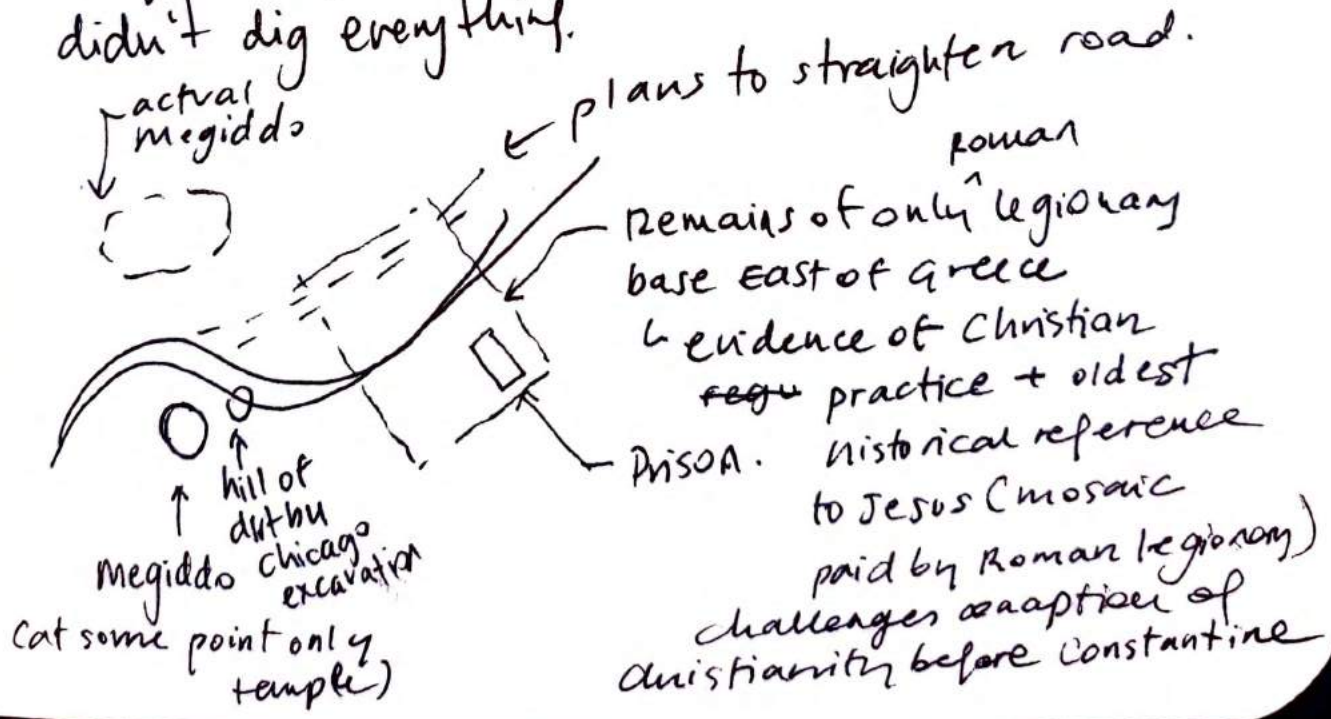 didn't dig everything.
actual
megiddo
plans to straighten road.
Roman
Remains of only ^ legionary
base East of Greece
↳ evidence of Christian
regu practice + oldest
historical reference
to Jesus (mosaic
paid by Roman legionary)
challenges of
christianity before Constantine
Prison.
hill of
dirt by
chicago
excavation
megiddo
(at some point only
temple)